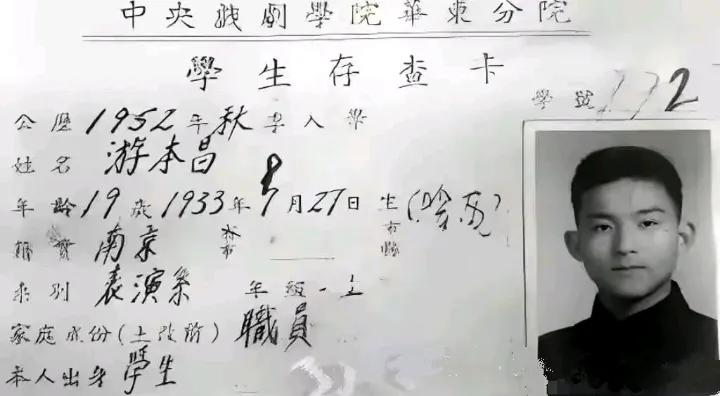 中央戏劇學院華東分院
學生存查卡
學號 172
公歷1952年秋季入學
姓名 游本昌
年齡19歲1933年8月27日生
籍貫 南京 市
系別 表演系 年級 一上
家庭成份(土改前) 職員
本人出身 學生